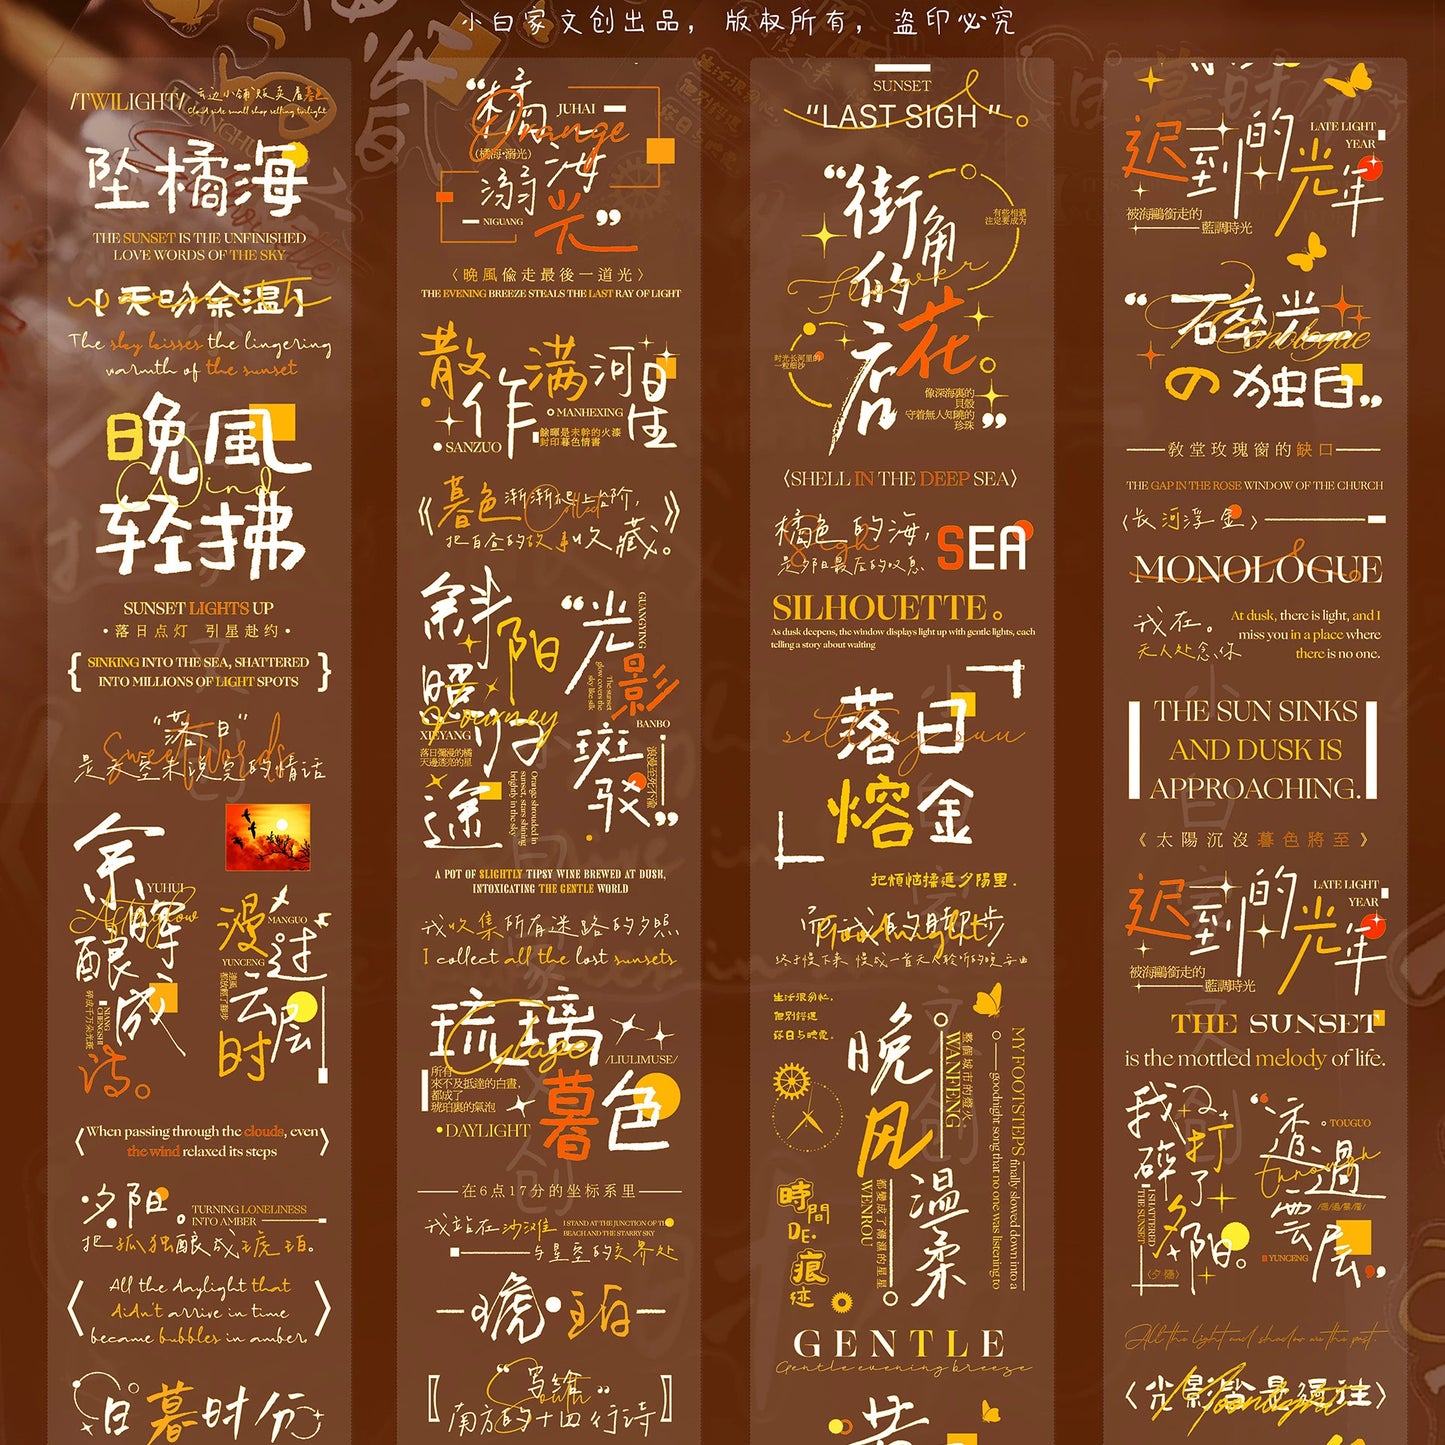 小白家文创出品，版权所有，盗印必究
/TWILIGHT/
云边小铺 贩卖着暮色
Cloud side small shop selling twilight
坠橘海
THE SUNSET IS THE UNFINISHED
LOVE WORDS OF THE SKY
【天吻余温】
warmth
The sky kisses the lingering
warmth of the sunset
晚風
Wind
轻拂
SUNSET LIGHTS UP
•落日点灯 引星赴约•
SINKING INTO THE SEA, SHATTERED
INTO MILLIONS OF LIGHT SPOTS
“落日”
Sweet words
是天空未说完的情话
余晖
YUHUI
Afterglow
酿成
NIANG CHENGSHI
碎成千万朵光斑
诗。
漫过
MANGUO
YUNCENG
云层
時
When passing through the clouds, even
the wind relaxed its steps
夕阳。
TURNING LONELINESS
INTO AMBER
把孤独酿成琥珀。
All the daylight that
didn't arrive in time
became bubbles in amber.
日暮时分
“橘
JUHAI
Orange
(橘海·溺光)
海
溺
NIGUANG
光”
〈晚風偷走最後一道光〉
THE EVENING BREEZE STEALS THE LAST RAY OF LIGHT
散作满河星
MANHEXING
SANZUO
餘暉是未幹的火漆
封印暮色情書
《暮色渐渐爬上台阶，
Collect
把白昼的故事收藏。》
斜阳
照
Journey
XIEYANG
归途
落日彌漫的橘
天邊透亮的星
Orange shrouded in
sunset, stars shining
brightly in the sky
“光影
GUANGYING
The sunset
glow covers the
sky like silk
BANBO
斑驳”
浪漫至死不渝
A POT OF SLIGHTLY TIPSY WINE BREWED AT DUSK,
INTOXICATING THE GENTLE WORLD
我收集所有迷路的夕照
I collect all the lost sunsets
琉璃
Glaze
/LIULIMUSE/
所有
來不及抵達的白晝，
都成了
琥珀裏的氣泡
暮色
•DAYLIGHT
在6点17分的坐标系里
我站在沙滩
I STAND AT THE JUNCTION OF TH
BEACH AND THE STARRY SKY
与星空的交界处
琥珀
“写给”
South
南方的十四行诗
SUNSET
“LAST SIGH”
“街角
有些相遇
注定要成为
Flower
的花
时光长河里的
一粒细沙
店
像深海裏的
貝殼
守着無人知曉的
珍珠
”
〈SHELL IN THE DEEP SEA〉
橘色的海，
Sigh
是夕阳最后的叹息
SEA
SILHOUETTE。
As dusk deepens, the window displays light up with gentle lights, each
telling a story about waiting
落日
setting sun
熔金
把煩惱揉進夕陽里.
而我的脚步
终于慢下来 慢成一首无人聆听的晚安曲
生活很匆忙，
但别錯過
落日与晚霞.
晚风
WANFENG
整個城市的燈火
MY FOOTSTEPS finally slowed down into a
goodnight song that no one was listening to
温柔
WENROU
都變成了潮濕的星星
時間
DE.
痕
迹
GENTLE
Gentle evening breeze
迟到的光年
LATE LIGHT
YEAR
被海鷗銜走的
藍調時光
“碎光
Monologue
の独白”
教堂玫瑰窗的缺口
THE GAP IN THE ROSE WINDOW OF THE CHURCH
〈长河浮金〉
MONOLOGUE
我在。
无人处念你
At dusk, there is light, and I
miss you in a place where
there is no one.
THE SUN SINKS
AND DUSK IS
APPROACHING.
《太陽沉沒暮色將至》
迟到的光年
LATE LIGHT
YEAR
被海鷗銜走的
藍調時光
THE SUNSET
is the mottled melody of life.
我打
碎了
I SHATTERED
THE SUNSET
夕阳。
〈夕陽〉
“透過
TOUGUO
through
雲層”
YUNCENG
All the light and shadow are the past.
〈光影皆是过往〉